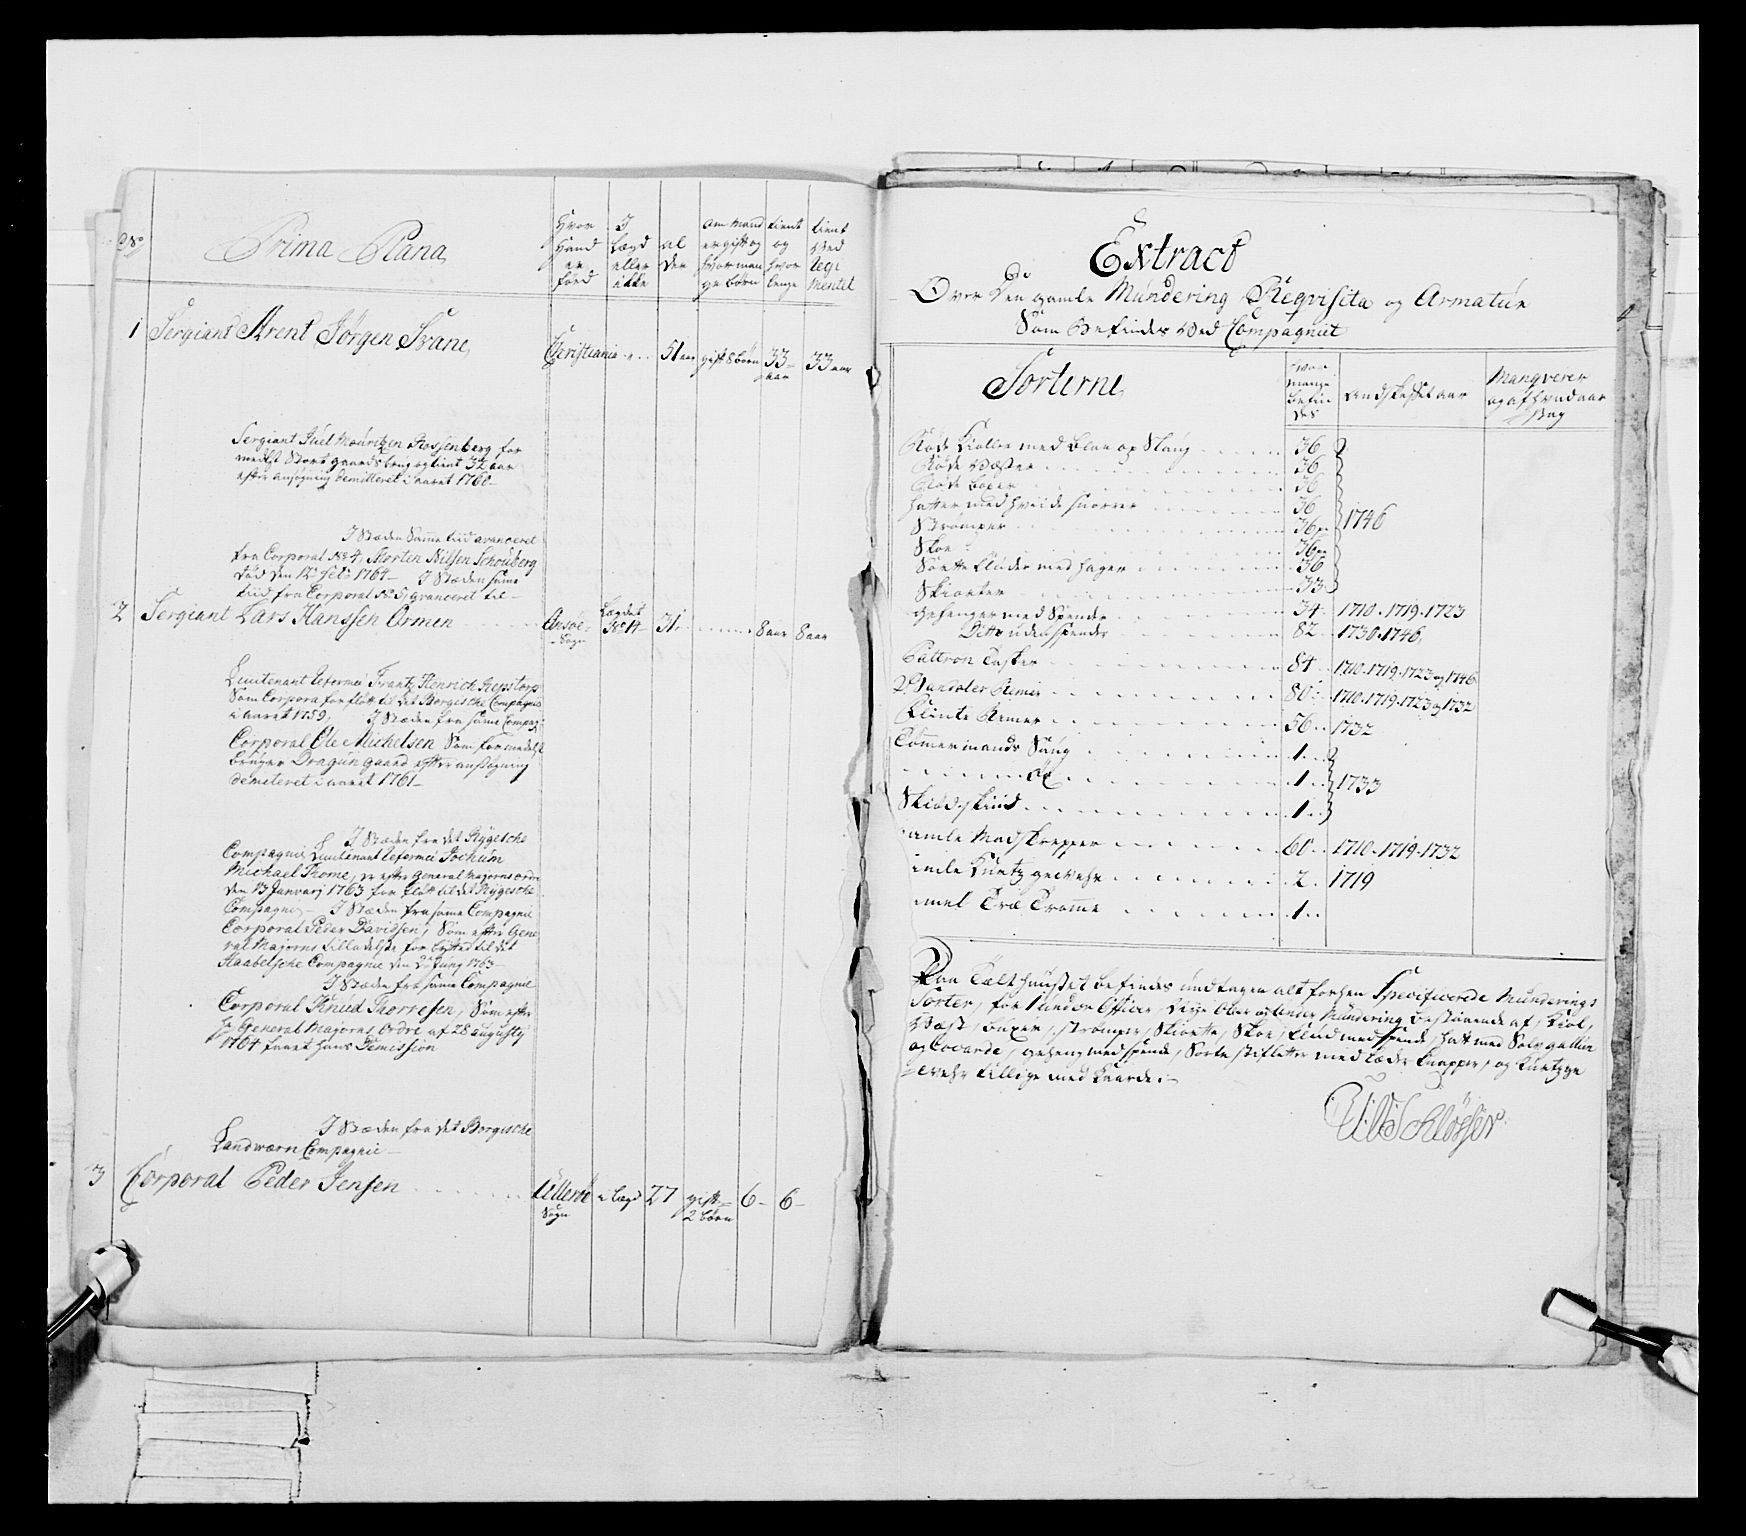 No
Prima Plana
Hvor
Hand
er
föed
I
Lægd
eller
ikke
al
der
om Mand
er gift og
hvor man
ge börn
tient
og
hvor
lenge
tient
ved
Regi
mentet
1 Sergiant Arent Jörgen Svane
Christiania 51 aar gift 8 börn 33 aar 33 aar
Sergiant Juel Mouritzen Rossenberg for
medelst Stort gaards brug og tient 32 aar
efter ansögning demitteret i aaret 1760
I Stæden Samme tiid avanceret
fra Corporal No 4, Morten Nilsen Schouberg
död den 12 feb: 1764 I Stæden same
tiid fra Corporal No 5, avanceret til
2 Sergiant Lars Hanssen Ormen
Sogn Lægdet No 14 31 8 aar 8 aar
Lieutenant Reformé Frantz Henrich Repstorp
Som Corporal forflöt til det Borgesche Compagnie
i aaret 1759, I Stæden fra same Compag:
Corporal Ole Michelsen Som formedelst
bruger Dragun gaard efter ansögning
demiteret i aaret 1761
I Stæden fra det Rygesche
Compagnie Lieutenant Reformé Jochum
Michael Thome, er efter General Majorens ordre
den 13 Januarj 1763 forflöt til det Rygesche
Compagnie I Stæden fra same Compagnie
Corporal Peder Davidsen, Som efter Gene
ral Majorens tilladelse forbÿtted til det
Kaabelsche Compagnie den 2 Junÿ 1763
I Stæden fra same Compagnie
Corporal Knud Thorresen, Som efter
Hr General Majorens Ordre af 28 augustÿ
1764 faaet hans Demission
I Stæden fra det Borgesche
Landværn Compagnie
3 Corporal Peder Jensen
Ullerøe Sogn i lægd 27 gift 2 börn 6 6
Extract
De
Over Den gamle Mundering Reqvisita og Armatur
Som Befindes ved Compagniet
Sorterne
Hvor
mange
befin
des
Andskaffet aar
Manqverer
og af hvad aar
sag
Röde Kioller med blaa opslaug 36
Röde Væster 36
Röde boxer 36
hatter med hviide snorer 36
Strömper 36 par 1746
Skoe 36 par
Sorte Kluder med hager 36
Skiorter 33
Gehenger med Spender 34 1710. 1719. 1723
Ditto uden spender 82 1730. 1746.
Pattron Tasker 84 1710. 1719. 1723 og 1746
Bandoler Remer 80 1710. 1719. 1723 og 1732
Flinte Remer 56 1732
Tömmermands Saug 1
öx 1 1733
Skiödskind 1
amle Madskrepper 60 1710. 1719. 1732
amle Kurtz gevehr 2 1719
mel Træ Tromme 1
Paa Tælthuuset befindes undtagen alt forhen Specificerede Munderings
Sorter, for 1 under Officer Liige ober og under Mundering bestaaende af, Kiol,
Væst, buxer, strömper, Skiorte, Skoe, Klud med spende, hat med Sölv gallun
og Cocarde, geheng med spende, Sorte stifletter med læder knapper, og kurtzge
vehr tillige med kaarde
Schlösser